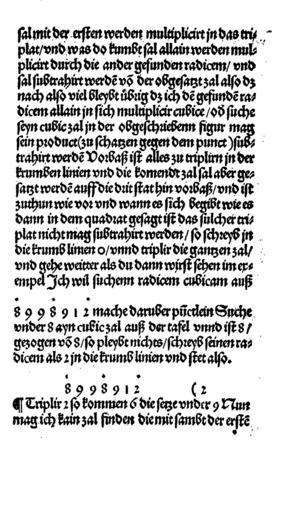 sal mit der ersten werden multiplicirt in das tri⸗
plat/vnd was do kumbt sal allain werden mul⸗
plicirt durch die ander gefunden radicem/ vnd
sal subtrahirt werdē vō der obgesatzt zal also dz
nach also viel bleybt übrig dz ich dē gefundē ra⸗
dicem allain in sich multiplicir cubice/ oð suche
seyn cubic zal in der obgeschriebenn figur mag
sein product (zu schatzen gegen dem punct )sub⸗
trahirt werdē Vorbaß ist alles zu triplirn in der
krumben linien vnd die komendt zal sal aber ge⸗
satzt werdē auff die drit stat hin vorbaß/ vnd ist
zuthun wie vor vnd wann es sich begibt wie es
dann in dem quadrat gesagt ist das sulcher tri⸗
plat nicht mag subtrahirt werden/ so schreyb in
die krumb linien 0/vnnd triplir die gantzen zal/
vnd gehe weitter als du dann wirst sehen im ex⸗
empel Jch wil suchenn radicem cubicam auß
8 9 9 8 9 1 2 mache daruber pūctlein Suche
vnder 8 ayn cubic zal auß der tafel vnnd ist 8/
gezogen vō 8/so pleybt nichts/schreyb seinen ra⸗
dicem als 2 in die krumb linien vnd stet also.
8 9 9 8 9 1 2 (2
¶ Triplir 2 so kommen 6 die setze vnder 9 Nun
mag ich kain zal finden die mit sambt der erstē